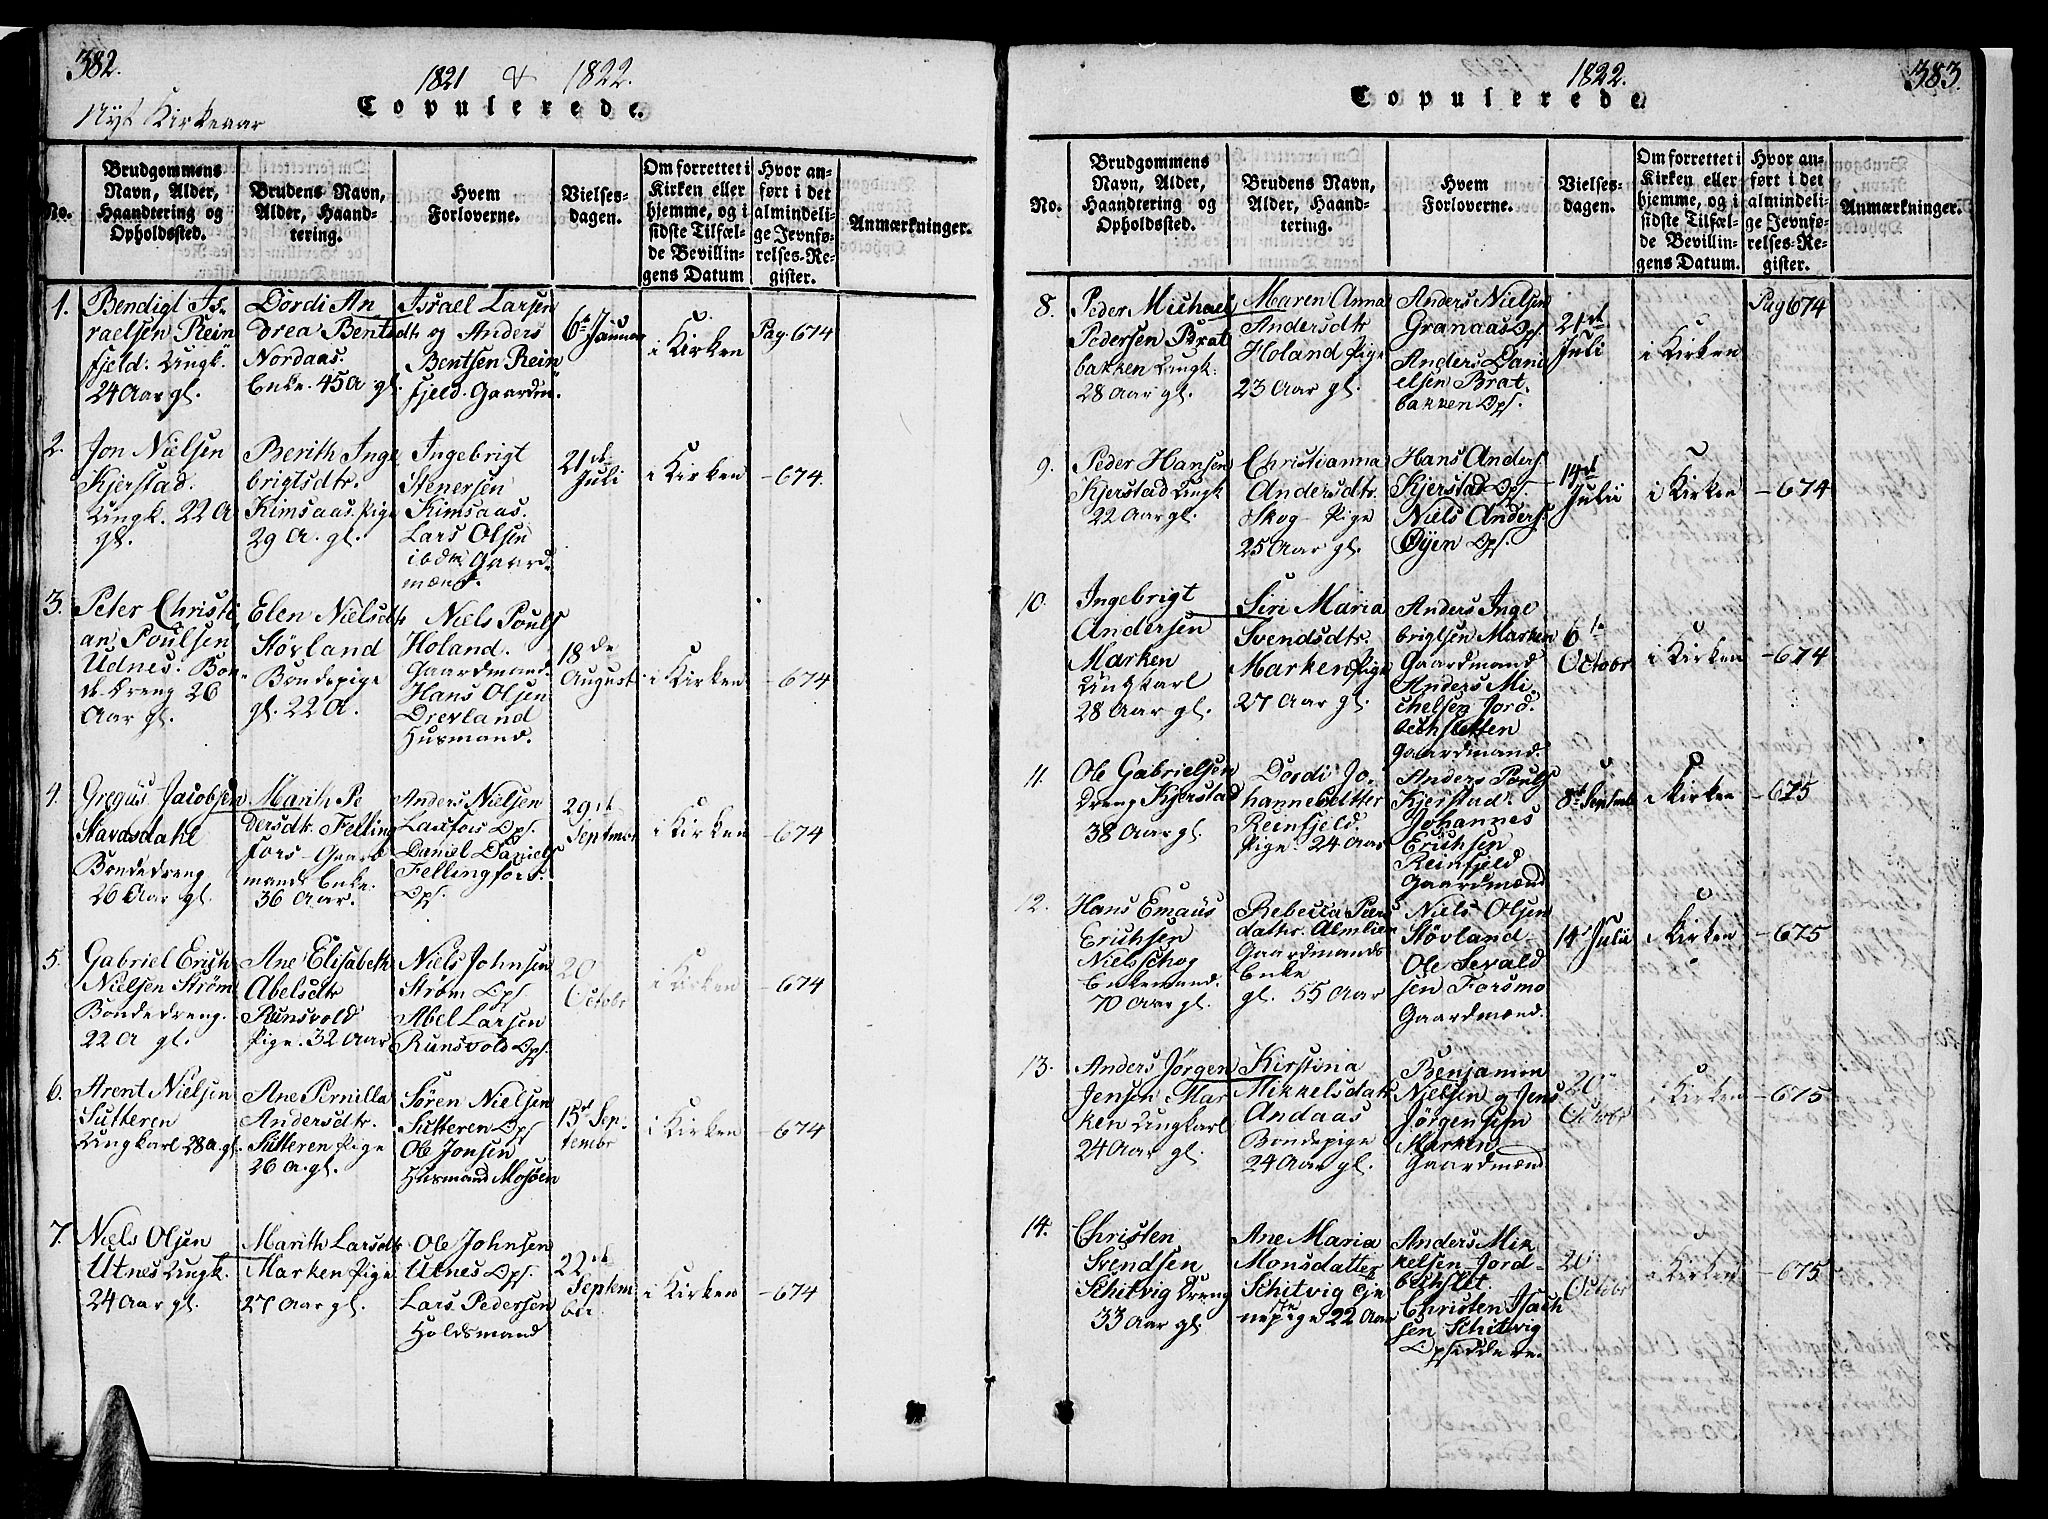 382.
1821 & 1822.
Nyt Kirkeaar
Copulerede.
No.
Brudgommens
Navn, Alder,
Haandtering og
Opholdssted.
Brudens Navn,
Alder, Haand-
tering.
Hvem
Forloverne.
Vielses-
dagen.
Om forrettet i
Kirken eller
hjemme, og i
sidste Tilfæl-
de Bevillin-
gens Datum
Hvor an-
ført i det
almindeli-
ge Jevnfø-
relses-Re-
gister.
Anmærkninger.
1.
Bendigt Is-
raelsen Rein
fjeld. Ungk.
24 Aar gl.
Dordi An
drea Bentsdtr
Nordaas.
Enke. 45 A gl.
Israel Larsen
og Anders
Bentsen Rein
fjeld. Gaardm.
6te Januar
i Kirken
Pag 674
2.
Jon Nielsen
Kjerstad.
Ungk. 22 A
gl.
Berith Inge
brigtsdtr.
Kimsaas. Pige
29 A. gl.
Ingebrigt
Stenersen
Kimsaas.
Lars Olsen
ibdm Gaard-
mænd.
21de
Juli
i Kirken
- 674.
3.
Peter Christi
an Poulsen
Udnes. Bon-
de-Dreng 26
Aar gl.
Elen Nielsdtr
Støvland
Bondepige
gl. 22 A.
Niels Pouls
Holand.
Gaardmand.
Hans Olsen
Drevland
Husmand.
18de
August
i Kirken
- 674
4.
Gregus Jacobsen
Stavasdahl
Bondedreng
26 Aar gl.
Marith Pe
dersdtr. Felling
fors - Gaard
mands Enke.
36 Aar.
Anders Nielsen
Laxfors Ops.
Daniel Daniels
Fellingfors.
Ops.
29de
Septmbr
i Kirken
- 674
5.
Gabriel Erich
Nielsen Strøm
Bondedreng.
22 A gl.
Ane Elisabeth
Abelsdtr
Runsvold
Pige. 32 Aar
Niels Johnsen
Strøm Ops.
Abel Larsen
Runsvold Ops.
20
Octobr
i Kirken
- 674
6.
Arent Nielsen
Sutteren
Ungkarl 28 A. gl.
Ane Pernilla
Andersdtr.
Sutteren Pige
26 A. gl.
Søren Nielsen
Sutteren Ops
Ole Jonsen
Husmand Mosøen
15de Sep-
tembr
i Kirken
- 674
7.
Niels Olsen
Utnes Ungk.
24 Aar gl.
Marith Larsdtr
Marken Pige
27 Aar gl.
Ole Johnsen
Utnes Ops.
Lars Pedersen
Holdsmand
22de
Septem
ber
i Kirken
- 674
383.
1822.
Copulerede
No.
Brudgommens
Navn, Alder,
Haandtering og
Opholdssted.
Brudens Navn,
Alder, Haand-
tering.
Hvem
Forloverne.
Vielses-
dagen.
Om forrettet i
Kirken eller
hjemme, og i
sidste Tilfæl-
de Bevillin-
gens Datum.
Hvor an-
ført i det
almindeli-
ge Jevnfø-
relses-Re-
gister.
Anmærkninger.
8.
Peder Michael
Pedersen Brat
bakken Ungk.
28 Aar gl.
Maren Anna
Andersdtr
Holand Pige
23 Aar gl.
Anders Nielsen
Granaas Ops.
Anders Dani
elsen Brat-
bakken Ops.
21de
Juli
i Kirken
Pag 674
9.
Peder Hansen
Kjerstad Ungk
22 Aar gl.
Christianna
Andersdtr.
Skog - Pige
25 Aar gl.
Hans Anders.
Kjerstad Ops.
Niels Anders.
Øyen Ops.
14de
Julii
i Kirken
- 674
10.
Ingebrigt
Andersen
Marken
Ungkarl
28 Aar gl.
Siri Maria
Svendsdtr.
Marken Pige
27 Aar gl.
Anders Inge
brigtsen Marken
Gaardmand
Anders Mi-
chelsen Jord-
bechsletten
Gaardmand.
6te
Octobr
i Kirken
- 674
11.
Ole Gabrielsen
Dreng Kjerstad
38 Aar gl.
Dordi Jo-
hannesdtter
Reinfjeld.
Pige. 24 Aar
Anders Pouls
Kjerstad.
Johannes
Erichsen
Reinfjeld
Gaardmænd
8de Septmb
i Kirken
- 675
12.
Hans Emaus
Erichsen
Nielsschog
Enkemand.
70 Aar gl.
Rebecca Peers
dathr. Almlien
Gaardmands
Enke
gl. 55 Aar
Niels Olsen
Støvland.
Ole Sevald
sen Forsmo
Gaardmænd.
14de Julii
i Kirken
- 675
13.
Anders Jørgen
Jensen Mar
ken Ungkarl
24 Aar gl.
Kirstina
Mikkelsdatr
Andaas
Bondepige
24 Aar gl.
Benjamin
Nielsen og Jens
Jørgensen
Marken
Gaardmænd
20
Octobr
i Kirken
- 675
14.
Christen
Svendsen
Schitvig Dreng
33 Aar gl.
Ane Maria
Monsdatter
Schitvig Tje
nestepige 22 Aar
Anders Mik
kelsen Jord-
bechslet.
Christen Isach
sen Schitvig
Opsiddere.
20
Octobr
i Kirken
- 675